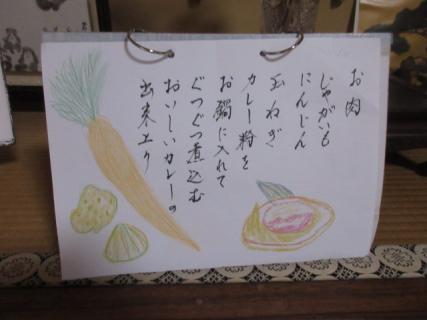 お肉
じゃがいも
にんじん
玉ねぎ
カレー粉を
お鍋に入れて
ぐつぐつ煮込む
おいしいカレーの
出来上り